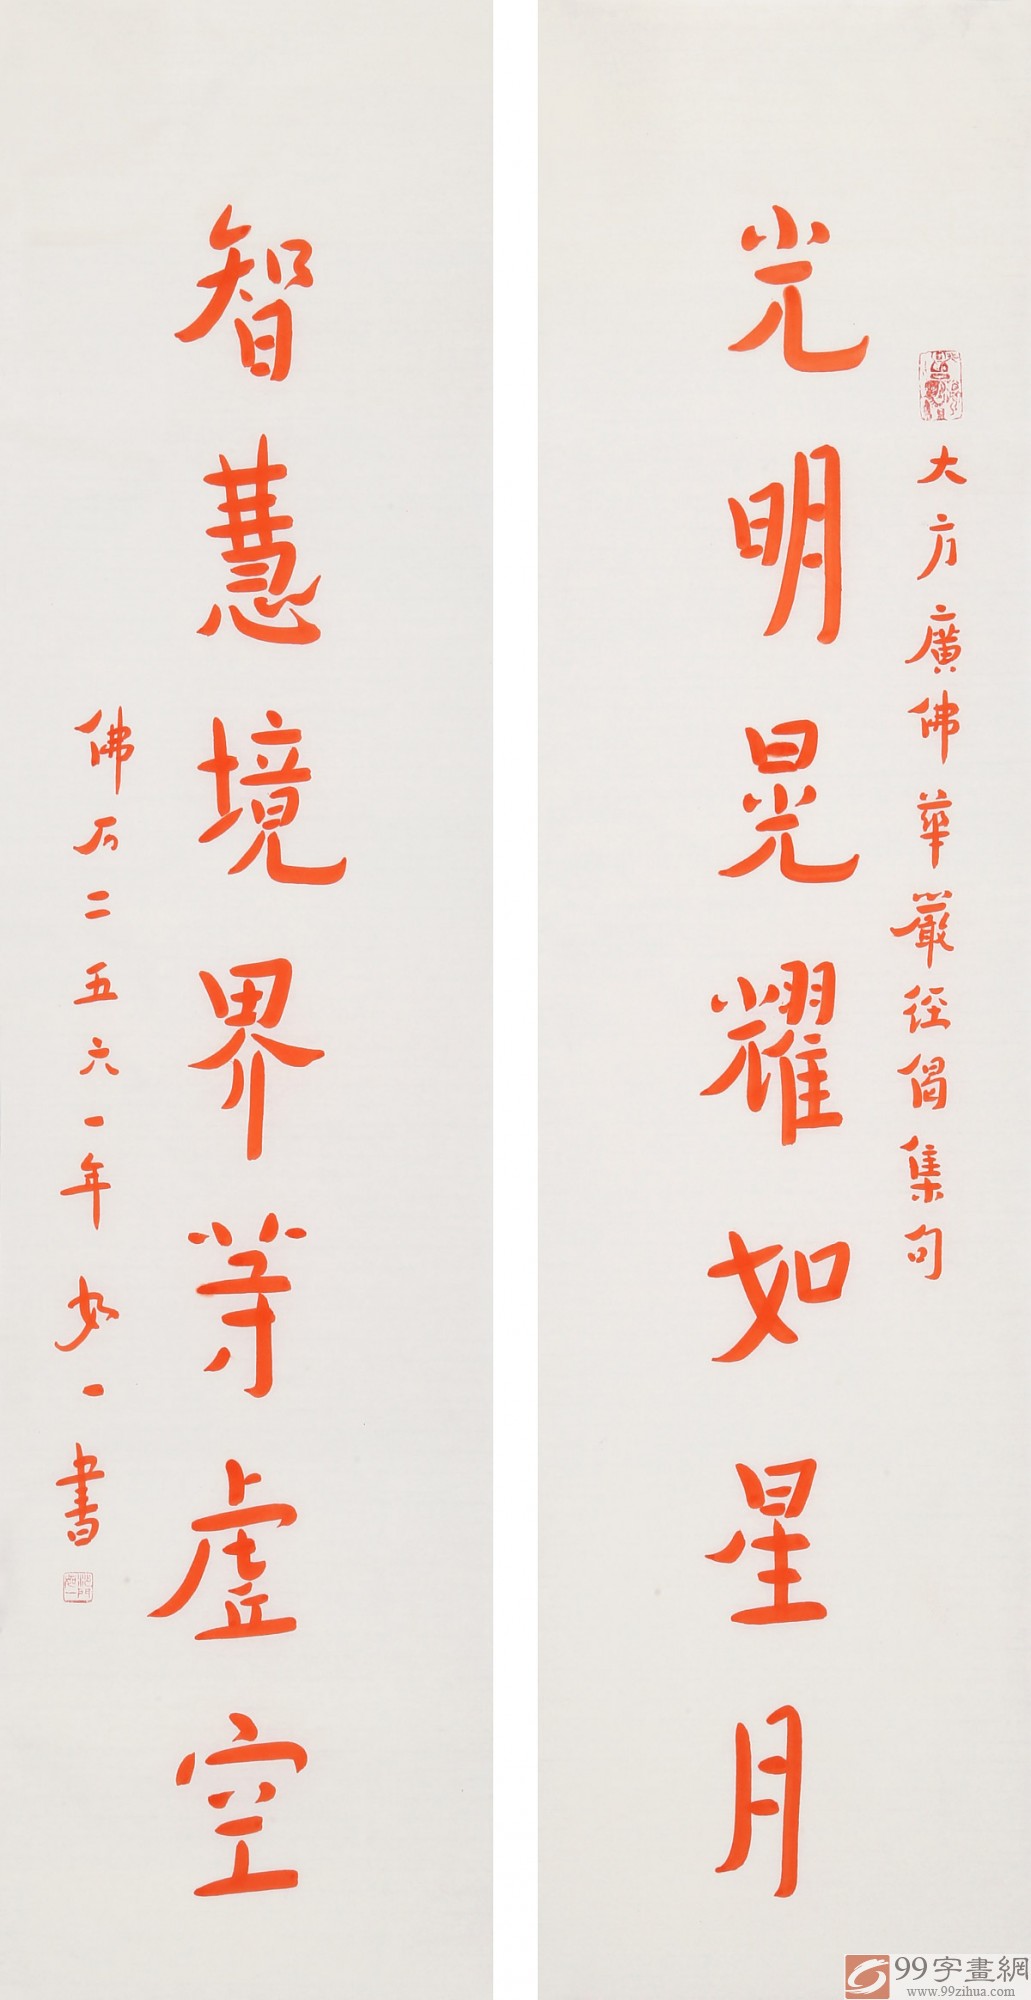 大方廣佛華嚴经偈集句
光明晃耀如星月
智慧境界等虛空
佛历二五六一年如一書
99字畫網
www.99zihua.com